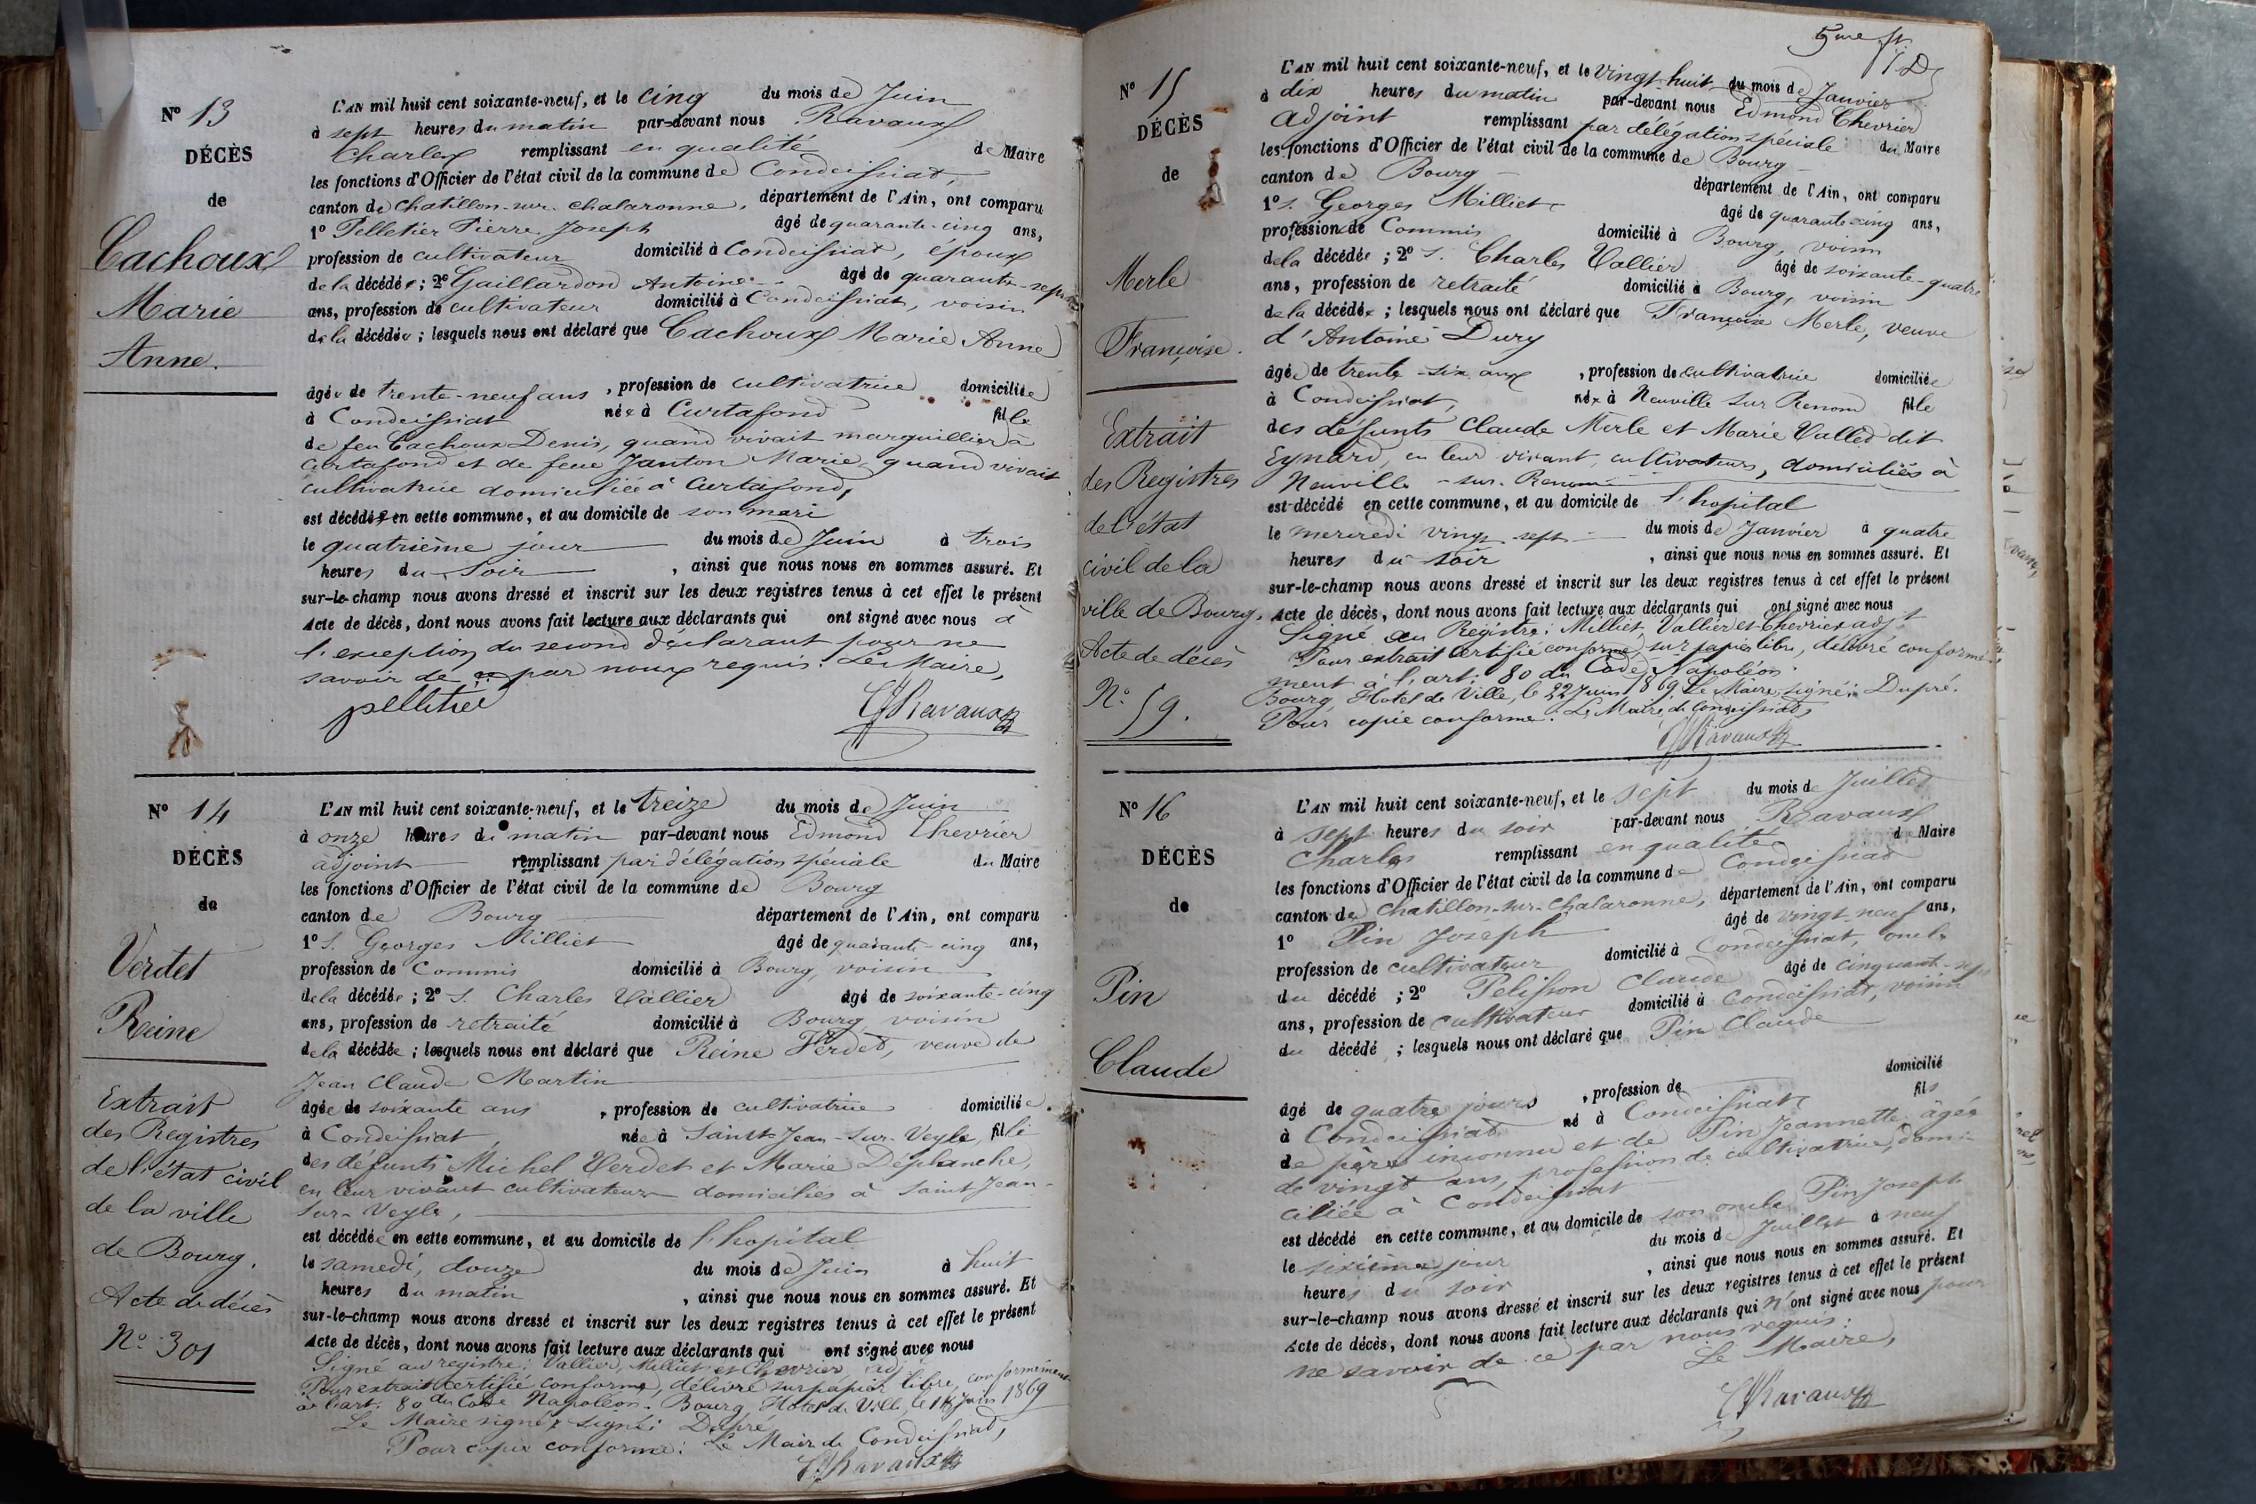 N° 13
DÉCÈS
de
Cachoux
Marie
Anne.
L'AN mil huit cent soixante-neuf, et le cinq du mois de Juin
à sept heures du matin par-devant nous Ravaux
Charles remplissant en qualité de Maire
les fonctions d'Officier de l'état civil de la commune de Condeissiat,
canton de Chatillon-sur-Chalaronne, département de l'Ain, ont comparu
1° Pelletier Pierre Joseph âgé de quarante-cinq ans,
profession de cultivateur domicilié à Condeissiat, époux
de la décédée ; 2° Gaillardon Antoine âgé de quarante-sept
ans, profession de cultivateur domicilié à Condeissiat, voisin
de la décédée ; lesquels nous ont déclaré que Cachoux Marie Anne
âgée de trente-neuf ans , profession de cultivatrice domiciliée
à Condeissiat née à Curtafond fille
de feu Cachoux Denis, quand vivait marguillier à
Curtafond et de feue Janton Marie quand vivait
cultivatrice domiciliée à Curtafond,
est décédée en cette commune, et au domicile de son mari
le quatrième jour du mois de Juin à trois
heures du soir , ainsi que nous nous en sommes assuré. Et
sur-le-champ nous avons dressé et inscrit sur les deux registres tenus à cet effet le présent
Acte de décès, dont nous avons fait lecture aux déclarants qui ont signé avec nous à
l'exception du second déclarant pour ne
savoir de ce par nous requis. Le Maire,
pelletier Ch Ravaux
N° 14
DÉCÈS
de
Verdet
Reine
Extrait
des Registres
de l'état civil
de la ville
de Bourg.
Acte de décès
N° 301
L'AN mil huit cent soixante-neuf, et le treize du mois de Juin
à onze heures du matin par-devant nous Edmond Chevrier
adjoint remplissant par délégation spéciale du Maire
les fonctions d'Officier de l'état civil de la commune de Bourg
canton de Bourg département de l'Ain, ont comparu
1° S. Georges Milliet âgé de quarante-cinq ans,
profession de Commis domicilié à Bourg, voisin
de la décédée ; 2° S. Charles Vallier âgé de soixante-cinq
ans, profession de retraité domicilié à Bourg voisin
de la décédée ; lesquels nous ont déclaré que Reine Verdet, veuve de
Jean Claude Martin
âgée de soixante ans , profession de cultivatrice domiciliée
à Condeissiat, née à Saint Jean-sur-Veyle, fille
des défunts Michel Verdet et Marie Déplanche,
en leur vivant cultivateurs domiciliés à Saint Jean-
sur-Veyle,
est décédée en cette commune, et au domicile de l'hopital
le samedi, douze du mois de Juin à huit
heures du matin , ainsi que nous nous en sommes assuré. Et
sur-le-champ nous avons dressé et inscrit sur les deux registres tenus à cet effet le présent
Acte de décès, dont nous avons fait lecture aux déclarants qui ont signé avec nous
Signé au registre: Vallier, Milliet et Chevrier adj.
Pour extrait certifié conforme, délivré sur papier libre, conformément
à l'art. 80 du Code Napoléon. Bourg, Hôtel de Ville, le Juin 1869
Le Maire signé signé: Dupré
Pour copie conforme: Le Maire de Condeissiat,
Ch Ravaux
5me f.
N° 15
DÉCÈS
de
Merle
Françoise.
Extrait
des Registres
de l'état
civil de la
ville de Bourg.
Acte de décès
N° 59.
L'AN mil huit cent soixante-neuf, et le vingt-huit du mois de Janvier
à dix heures du matin par-devant nous Edmond Chevrier
adjoint remplissant par délégation spéciale du Maire
les fonctions d'Officier de l'état civil de la commune de Bourg
canton de Bourg département de l'Ain, ont comparu
1° S. Georges Milliet âgé de quarante-cinq ans,
profession de Commis domicilié à Bourg, voisin
de la décédée ; 2° S. Charles Vallier âgé de soixante-quatre
ans, profession de retraité domicilié à Bourg, voisin
de la décédée ; lesquels nous ont déclaré que Françoise Merle, veuve
d'Antoine Dury
âgée de trente-six ans , profession de cultivatrice domiciliée
à Condeissiat, née à Neuville sur Renom fille
des défunts Claude Merle et Marie Vallet dit
Eynard, en leur vivant, cultivateurs, domiciliés à
Neuville-sur-Renom
est décédé en cette commune, et au domicile de l'hopital
le mercredi vingt-sept du mois de Janvier à quatre
heures du soir , ainsi que nous nous en sommes assuré. Et
sur-le-champ nous avons dressé et inscrit sur les deux registres tenus à cet effet le présent
Acte de décès, dont nous avons fait lecture aux déclarants qui ont signé avec nous
Signé au Registre: Milliet, Vallier et Chevrier adjt
Pour extrait certifié conforme, sur papier libre, délivré conformé-
ment à l'art. 80 du Code Napoléon.
Bourg, Hotel de Ville, le 22 Juin 1869. Le Maire, signé: Dupré.
Pour copie conforme: Le Maire de Condeissiat,
Ch Ravaux
N° 16
DÉCÈS
de
Pin
Claude
L'AN mil huit cent soixante-neuf, et le sept du mois de Juillet
à sept heures du soir par-devant nous Ravaux
Charles remplissant en qualité de Maire
les fonctions d'Officier de l'état civil de la commune de Condeissiat
canton de Chatillon-sur-Chalaronne, département de l'Ain, ont comparu
1° Pin Joseph âgé de vingt-neuf ans,
profession de cultivateur domicilié à Condeissiat, oncle
du décédé ; 2° Pelisson Claude âgé de cinquante-sept
ans, profession de cultivateur domicilié à Condeissiat, voisin
du décédé ; lesquels nous ont déclaré que Pin Claude
âgé de quatre jours , profession de domicilié
à Condeissiat né à Condeissiat fils
de père inconnu et de Pin Jeannette âgée
de vingt ans, profession de cultivatrice, domi-
ciliée à Condeissiat
est décédé en cette commune, et au domicile de son oncle Pin Joseph
le sixième jour du mois de Juillet à neuf
heures du soir , ainsi que nous nous en sommes assuré. Et
sur-le-champ nous avons dressé et inscrit sur les deux registres tenus à cet effet le présent
Acte de décès, dont nous avons fait lecture aux déclarants qui n'ont signé avec nous pour
ne savoir de ce par nous requis.
Le Maire,
Ch Ravaux